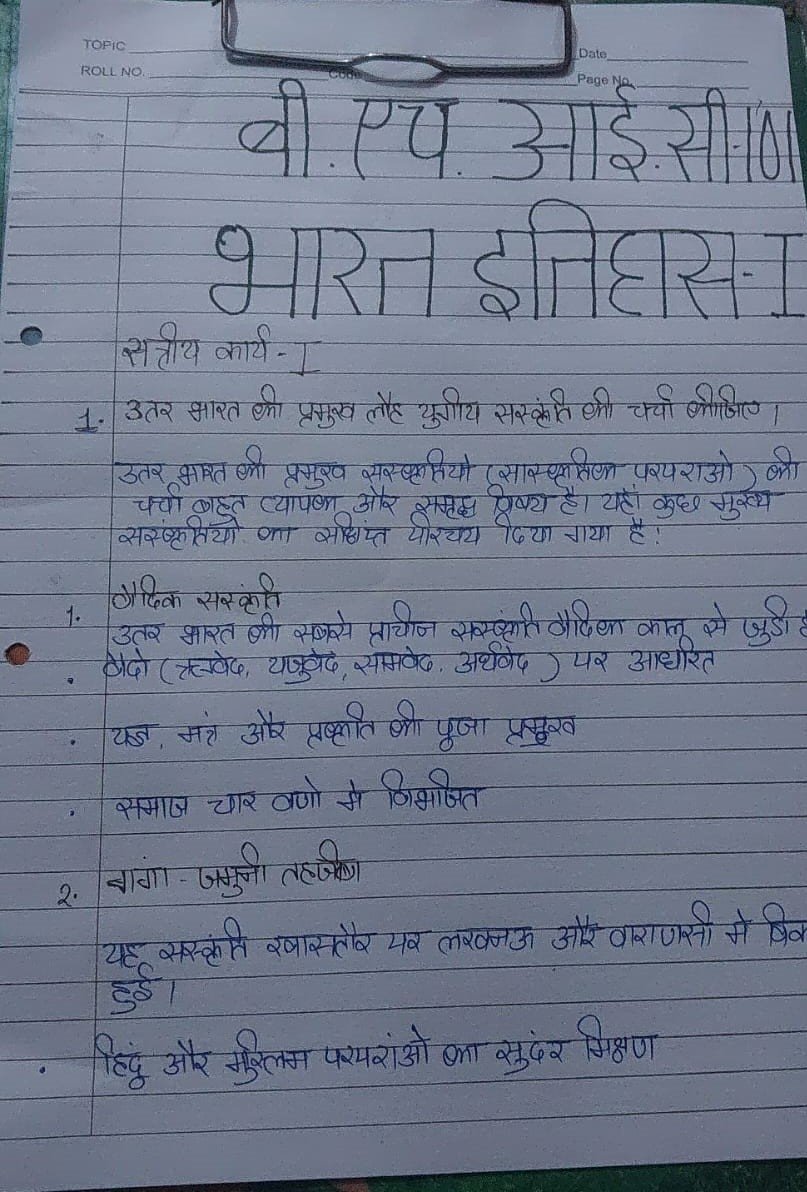 TOPIC
Date
ROLL NO.
Code
Page No.
बी.एच.आई.सी-101
भारत इतिहास-I
सत्रीय कार्य - I
1. उतर भारत की प्रमुख लौह युगीय संस्कृति की चर्चा कीजिए।
उतर भारत की प्रमुख संस्कृतियो (सांस्कृतिक परपराओ) की
चर्चा बहुत व्यापक और समृद्ध विषय है। यहाँ कुछ मुख्य
संस्कृतियो का संक्षिप्त परिचय दिया गया है:
1. वैदिक संस्कृति
उतर भारत की सबसे प्राचीन संस्कृति वैदिक काल से जुडी है
. वेदो (ऋग्वेद, यजुवेद, सामवेद, अर्थवेद) पर आधारित
. यज्ञ, मंत्र और प्रकृति की पूजा प्रमुख
. समाज चार वर्णो मे विभाजित
2. गंगा - जमुनी तहजीब
यह संस्कृति खासतौर पर लखनऊ और वाराणसी मे विक
हुई।
. हिंदू और मुस्लिम परपरांओ का सुदंर मिक्षण